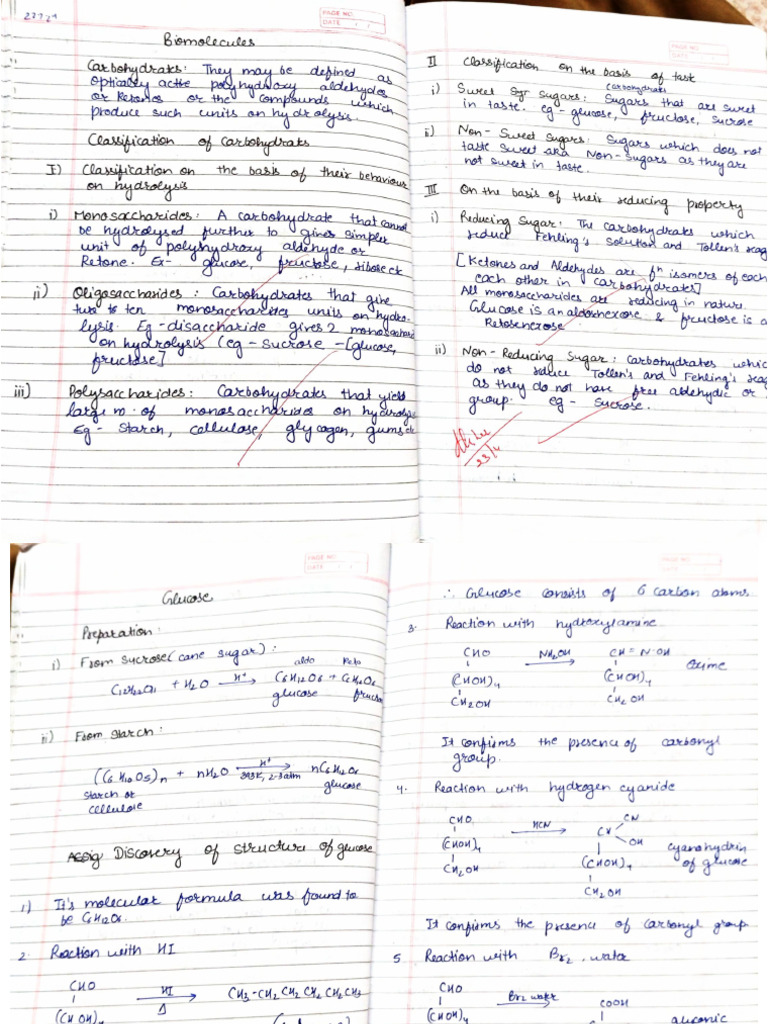 22.7.24
PAGE NO.
DATE
Biomolecules
Carbohydrates: They may be defined as
Optically active polyhydroxy aldehydes
or Ketones or the compounds which
produce such units on hydrolysis.
Classification of Carbohydrates
I) Classification on the basis of their behaviour
on hydrolysis
i) Monosaccharides: A carbohydrate that cannot
be hydrolysed further to gives simpler
unit of polyhydroxy aldehyde or
Ketone. Ex- glucose, fructose, ribose etc
ii) Oligosaccharides: Carbohydrates that give
two to ten monosaccharides units on hydro-
lysis. Eg-disaccharide gives 2 monosacchari
on hydrolysis (eg- Sucrose -[glucose,
fructose]
iii) Polysaccharides: Carbohydrates that yield
large no. of monosaccharides on hydrolysis
Eg- starch, cellulose, glycogen, gums etc
PAGE NO.
DATE
II Classification on the basis of taste
carbohydrates
i) Sweet Sugars: Sugars that are sweet
in taste. eg- glucose, fructose, sucrose
ii) Non-Sweet Sugars: Sugars which does not
taste sweet aka Non-Sugars as they are
not sweet in taste.
III On the basis of their reducing property
i) Reducing Sugar: The carbohydrates which
reduce Fehling's solution and Tollen's reag
[Ketones and Aldehydes are fn isomers of each
each other in carbohydrates]
All monosaccharides are reducing in nature.
Glucose is an aldohexose & fructose is a
Ketohexose
ii) Non-Reducing Sugar: Carbohydrates which
do not reduce Tollen's and Fehling's reag
as they do not have free aldehydic or
group. eg- Sucrose.
23/4
PAGE NO.
DATE
Glucose
Preparation:
i) From sucrose (cane sugar):
aldo Keto
C12H22O11 + H2O H+ → C6H12O6 + C6H12O6
glucose fructos
ii) From starch:
(C6H10O5)n + nH2O H+ 393K, 2-3 atm → nC6H12O6
starch or glucose
cellulose
Discovery of structure of glucose
1) It's molecular formula was found to
be C6H12O6.
2. Reaction with HI
CHO
(CHOH)4 HI Δ → CH3-CH2 CH2 CH2 CH2 CH3
PAGE NO.
DATE
∴ Glucose consists of 6 carbon atoms
3. Reaction with hydroxylamine
CHO NH2OH → CH=N-OH
(CHOH)4 (CHOH)4 Oxime
CH2OH CH2OH
It confirms the presence of carbonyl
group.
4. Reaction with hydrogen cyanide
CHO HCN → CH CN
(CHOH)4 OH cyanohydrin
CH2OH (CHOH)4 of glucose
CH2OH
It confirms the presence of carbonyl group
5. Reaction with Br2 water
CHO Br2 water → COOH
(CHOH)4 gluconic